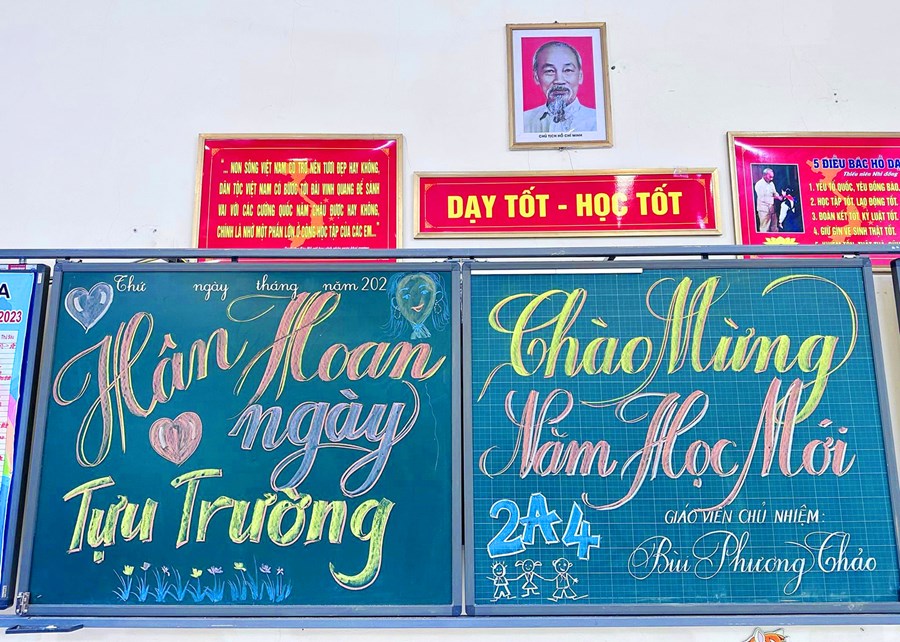 CHỦ TỊCH HỒ CHÍ MINH
"... NON SÔNG VIỆT NAM CÓ TRỞ NÊN TƯƠI ĐẸP HAY KHÔNG,
DÂN TỘC VIỆT NAM CÓ BƯỚC TỚI ĐÀI VINH QUANG ĐỂ SÁNH
VAI VỚI CÁC CƯỜNG QUỐC NĂM CHÂU ĐƯỢC HAY KHÔNG,
CHÍNH LÀ NHỜ MỘT PHẦN LỚN Ở CÔNG HỌC TẬP CỦA CÁC EM..."
DẠY TỐT - HỌC TỐT
5 ĐIỀU BÁC HỒ DẠ
Thiếu niên Nhi đồng
1. YÊU TỔ QUỐC, YÊU ĐỒNG BÀO.
2. HỌC TẬP TỐT, LAO ĐỘNG TỐT.
3. ĐOÀN KẾT TỐT, KỶ LUẬT TỐT.
4. GIỮ GÌN VỆ SINH THẬT TỐT.
A
2023
Thứ ngày tháng năm 202
Hân Hoan
ngày
Tựu Trường
Chào Mừng
Năm Học Mới
2A4
GIÁO VIÊN CHỦ NHIỆM:
Bùi Phương Thảo